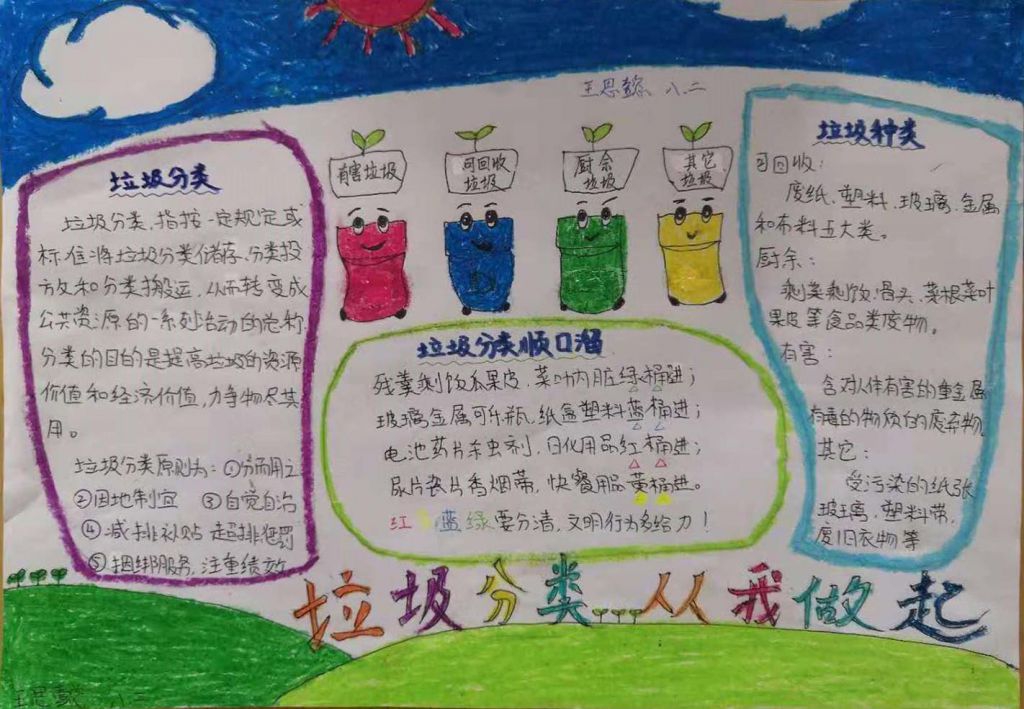 王思懿 八、二
有害垃圾
可回收
垃圾
厨余
垃圾
其它
垃圾
垃圾分类
垃圾分类,指按一定规定或
标准将垃圾分类储存、分类投
放和分类搬运,从而转变成
公共资源的一系列活动的总称.
分类的目的是提高垃圾的资源
价值和经济价值,力争物尽其
用。
垃圾分类原则为:①分而用之
②因地制宜 ③自觉自治
④减排补贴 超排惩罚
⑤捆绑服务,注重绩效
垃圾分类顺口溜
残羹剩饭瓜果皮,菜叶内脏绿桶进;
玻璃金属可乐瓶,纸盒塑料蓝桶进;
电池药片杀虫剂,日化用品红桶进;
尿片瓷片香烟蒂,快餐用品黄桶进。
红黄蓝绿要分清,文明行为多给力!
垃圾种类
可回收:
废纸、塑料、玻璃、金属
和布料五大类。
厨余:
剩菜剩饭、骨头、菜根菜叶
果皮等食品类废物。
有害:
含对人体有害的重金属
有毒的物质的废弃物
其它:
受污染的纸张
玻璃,塑料带,
废旧衣物等
垃圾分类 从我做起
王思懿 八、二